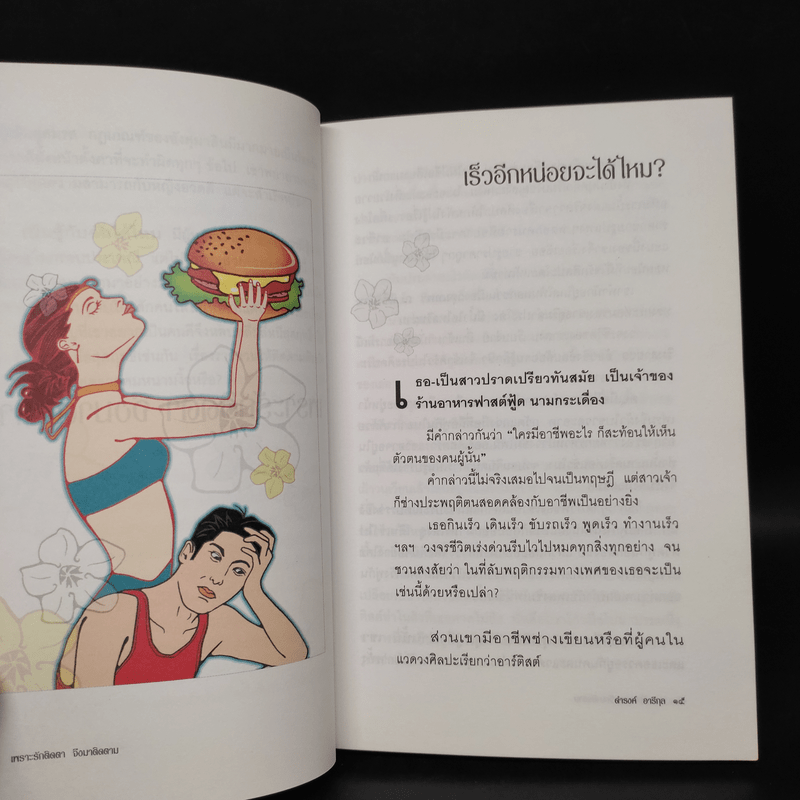 เพราะรักติดตา จึงมาติดตาม
เร็วอีกหน่อยจะได้ไหม?
เธอ-เป็นสาวปราดเปรียวทันสมัย เป็นเจ้าของ
ร้านอาหารฟาสต์ฟู้ด นามกระเดื่อง
มีคำกล่าวกันว่า “ใครมีอาชีพอะไร ก็สะท้อนให้เห็น
ตัวตนของคนผู้นั้น”
คำกล่าวนี้ไม่จริงเสมอไปจนเป็นทฤษฎี แต่สาวเจ้า
ก็ช่างประพฤติตนสอดคล้องกับอาชีพเป็นอย่างยิ่ง
เธอกินเร็ว เดินเร็ว ขับรถเร็ว พูดเร็ว ทำงานเร็ว
ฯลฯ วงจรชีวิตเร่งด่วนรีบไวไปหมดทุกสิ่งทุกอย่าง จน
ชวนสงสัยว่า ในที่ลับพฤติกรรมทางเพศของเธอจะเป็น
เช่นนี้ด้วยหรือเปล่า?
ส่วนเขามีอาชีพช่างเขียนหรือที่ผู้คนใน
แวดวงศิลปะเรียกว่าอาร์ติสต์
ดำรงค์ อารีกุล ๑๕